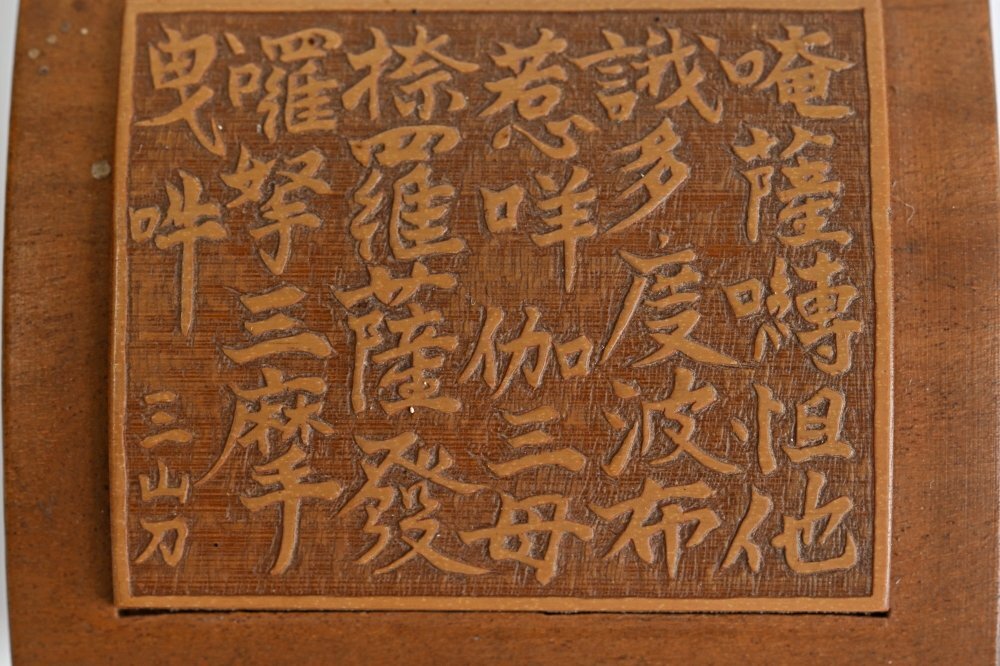 唵薩嚩怛他
誐多度波布
惹咩伽三母
捺羅薩發
囉拏三摩
曳吽 三山刀